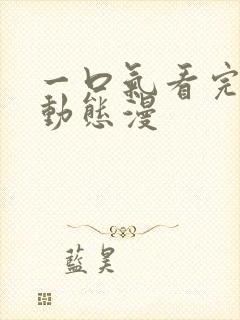 一口氣看完
動態漫
藍昊